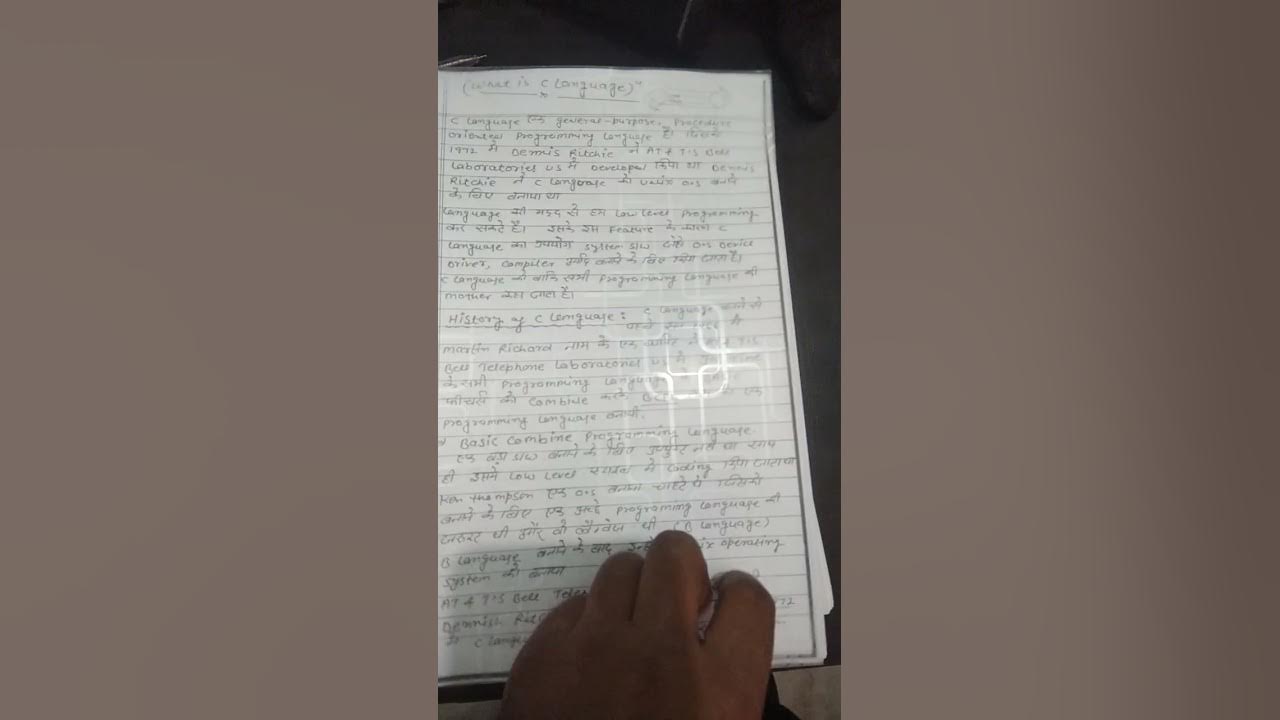 (What is C Language)"
C Language एक general-purpose, Procedure
oriented Programming Language है। जिसको
1972 में Dennis Ritchie ने AT & T'S Bell
Laboratories US में Developed किया था Dennis
Ritchie ने C Language को Unix O.S बनाने
के लिए बनाया था
Language की मदद से हम Low Level Programming
कर सकते हैं। इसके इस Feature के कारण C
Language का उपयोग System S/W जैसे O.S Device
Driver, Compiler आदि बनाने के लिए किया जाता है।
C Language को बाकि सभी Programming Language की
mother कहा जाता है।
History of C Language: C Language बनने से
पहले
Martin Richard नाम के एक व्यक्ति ने T'S
Bell Telephone Laboratories US में
के सभी Programming Language
फीचर्स को Combine करके एक
Programming Language बनायी.
Basic Combine Programming Language.
S/W बनाने के लिए उपयुक्त नहीं था साथ
ही इसमें Low Level में Coding किया जाता था
Ken Thompson एक O.S बनाना चाहते थे जिसको
बनाने के लिए एक अच्छे Programing Language की
जरूरत थी और वो लैंग्वेज थी (B Language)
B Language बनाने के बाद operating
System को बनाया
AT & T'S Bell
Dennish
C